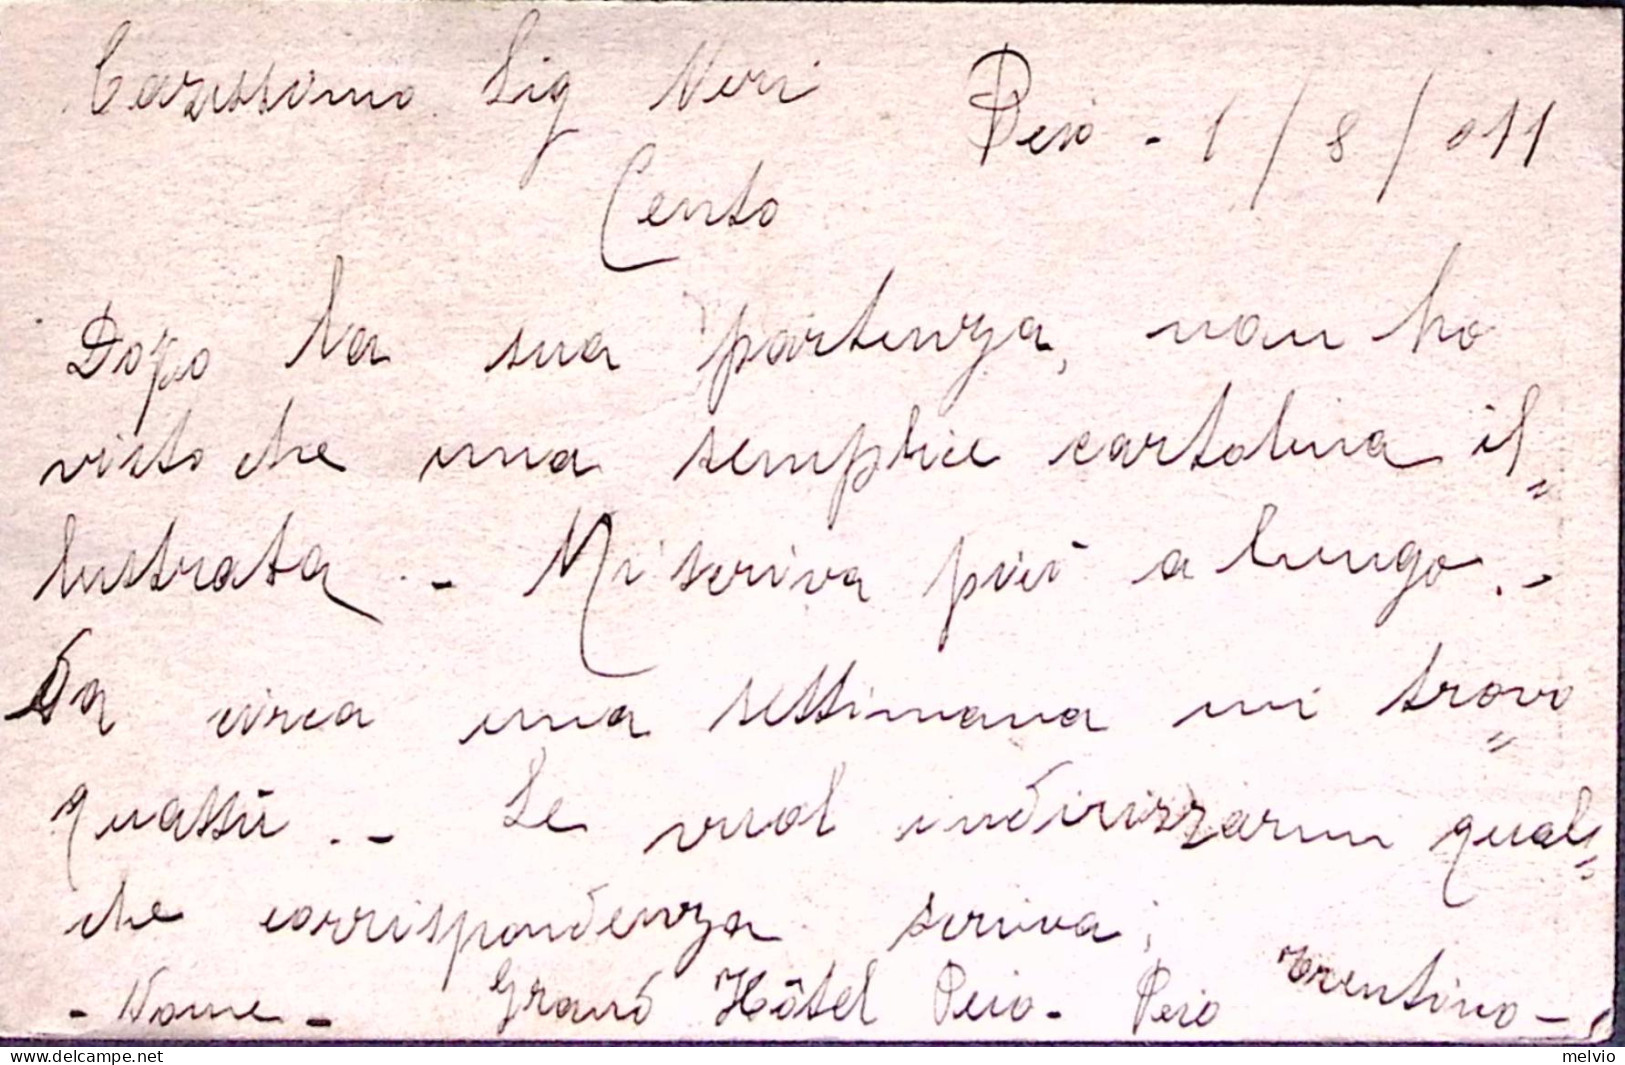 Carissimo Sig Neri Peio - 1/8/911
Cento
Dopo la sua partenza, non ho
visto che una semplice cartolina il=
lustrata. - Mi scriva più a lungo. -
Da circa una settimana mi trovo
quassù. - Se vuol indirizzarmi qual=
che corrispondenza scriva;
- Nome - Grand Hôtel Peio - Peio Trentino -
melvio
www.delcampe.net